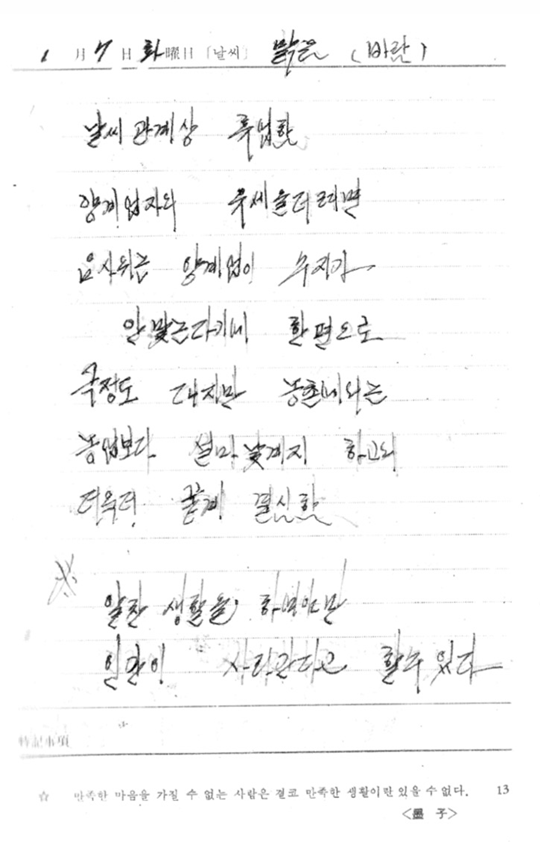 1 月 7 日 화 曜日 〔날씨〕 맑음 (바람)
날씨 관계상 휴업함
양계업자의 우세을 더려면
요사위는 양계업이 수지가
안 맞는다기네 한편으로
걱정도 대지만 농촌네와는
농업보다 설마 낮게지 하고의
더욱더 굳게 결심함
알찬 생활을 하여야만
인간이 사라간다고 할수있다
特記事項
☆ 만족한 마음을 가질 수 없는 사람은 결코 만족한 생활이란 있을 수 없다. 13
〈墨 子〉